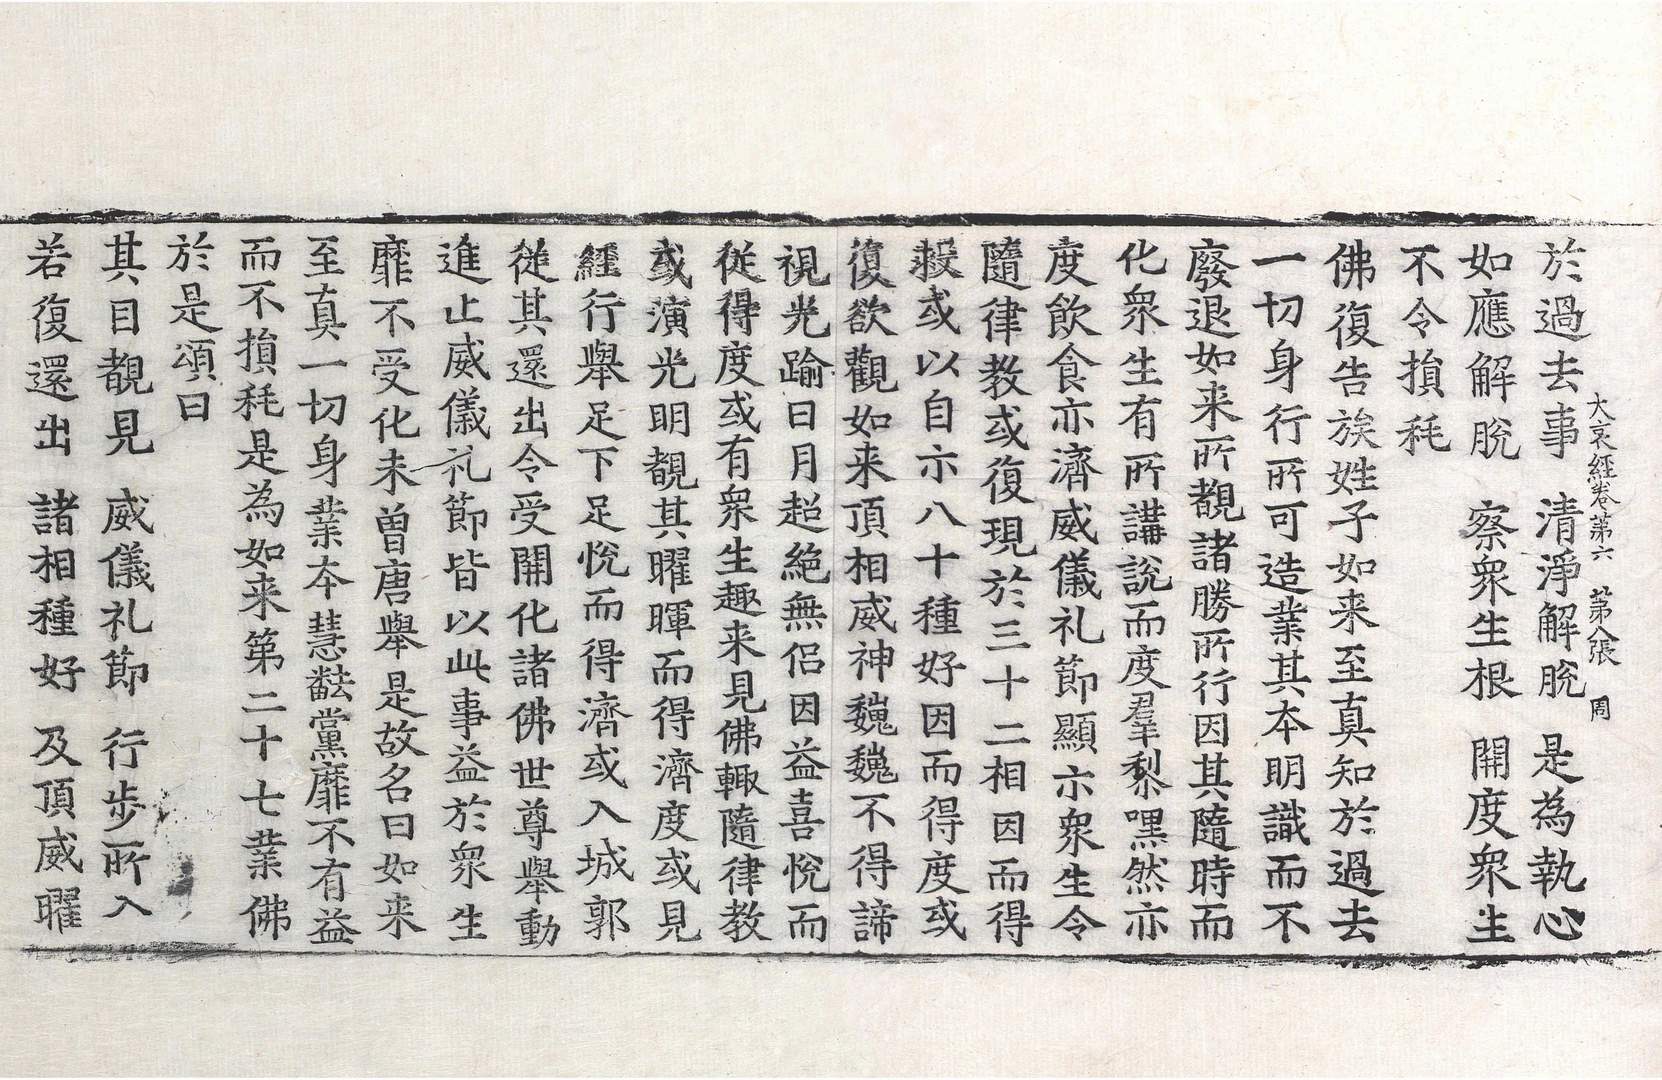 大哀経卷第六 第八張 周
於過去事 清淨解脫 是為執心
如應解脫 察衆生根 開度衆生
不令損耗
佛復告族姓子如来至真知於過去
一切身行所可造業其本明識而不
廢退如来所覩諸勝所行因其隨時而
化衆生有所講說而度羣黎嘿然亦
度飲食亦濟威儀礼節顯示衆生令
隨律教或復現於三十二相因而得
或以自示八十種好因而得度或
復欲觀如来頂相威神巍巍不得諦
視光踰日月超絶無侣因益喜悅而
從得度或有衆生趣来見佛輙隨律教
或演光明覩其曜暉而得濟度或見
經行舉足下足悅而得濟或入城郭
從其還出令受開化諸佛世尊舉動
進止威儀礼節皆以此事益於衆生
靡不受化未曽唐舉是故名曰如来
至真一切身業夲慧黨靡不有益
而不損耗是為如来第二十七業佛
於是頌曰
其目覩見 威儀礼節 行步所入
若復還出 諸相種好 及頂威曜